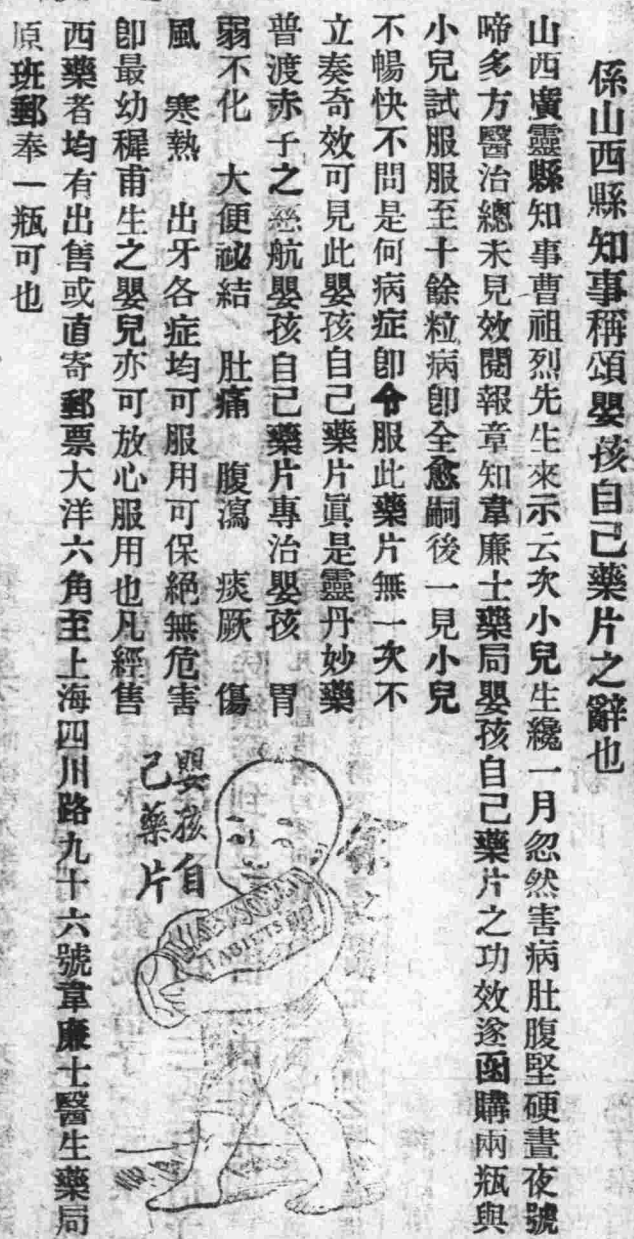 係山西縣知事稱頌嬰孩自己藥片之辭也
山西廣靈縣知事曹祖烈先生來示云次小兒生纔一月忽然害病肚腹堅硬晝夜號
啼多方醫治總未見效閱報章知韋廉士藥局嬰孩自己藥片之功效遂函購兩瓶與
小兒試服服至十餘粒病卽全愈嗣後一見小兒
不暢快不問是何病症卽令服此藥片無一次不
立奏奇效可見此嬰孩自己藥片眞是靈丹妙藥
普渡赤子之慈航嬰孩自己藥片專治嬰孩 胃
弱不化 大便祕結 肚痛 腹瀉 痰厥 傷
風 寒熱 出牙各症均可服用可保絕無危害
卽最幼穉甫生之嬰兒亦可放心服用也凡經售
西藥者均有出售或直寄郵票大洋六角至上海四川路九十六號韋廉士醫生藥局
原班郵奉一瓶可也
嬰孩自
己藥片
TABLETS